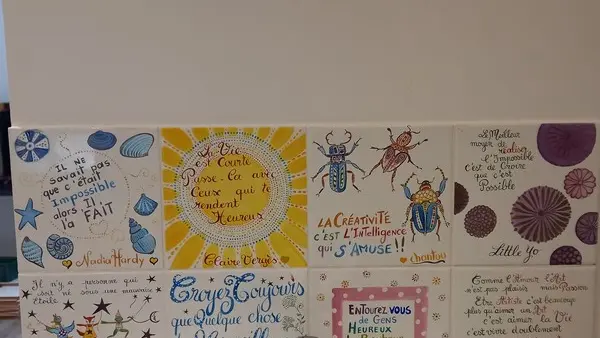 IL NE
savait pas
que c'était
Impossible
alors Il
l'a FAIT
Nadia Hardy
La Vie
est Courte
Passe-La avec
Ceux qui te
rendent
Heureux
Claire Vergès
LA CRÉATIVITÉ
C'EST L'INTELLIGENCE
qui S'AMUSE!!
chantou
Le Meilleur
moyen de
réaliser
l'Impossible
C'est de Croire
que c'est
Possible
Little Yo
Il n'y a personne qui
ne soit sous une mauvaise
Étoile
Croyez Toujours
que Quelque chose
de Merveilleux
ENTOUREZ VOUS
DE GENS
HEUREUX
Comme l'Amour, l'Art
n'est pas plaisir mais Passion
Être Artiste c'est beaucoup
plus qu'aimer un Art
c'est aimer la Vie
c'est vivre doublement